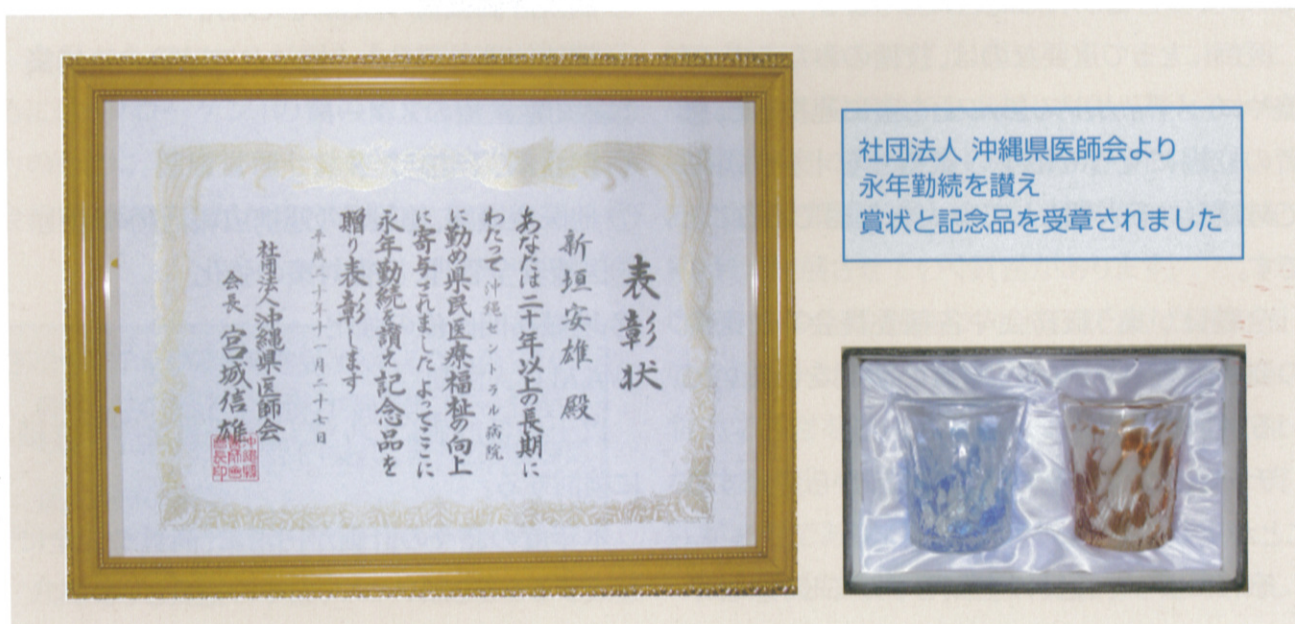 表彰状
新垣安雄殿
あなたは二十年以上の長期に
わたって沖縄セントラル病院
に勤め県民医療福祉の向上
に寄与されました よってここに
永年勤続を讃え記念品を
贈り表彰します
平成二十年十一月二十七日
社団法人沖縄県医師会
会長 宮城信雄
沖縄県
医師会
会長印
社団法人 沖縄県医師会より
永年勤続を讃え
賞状と記念品を受章されました